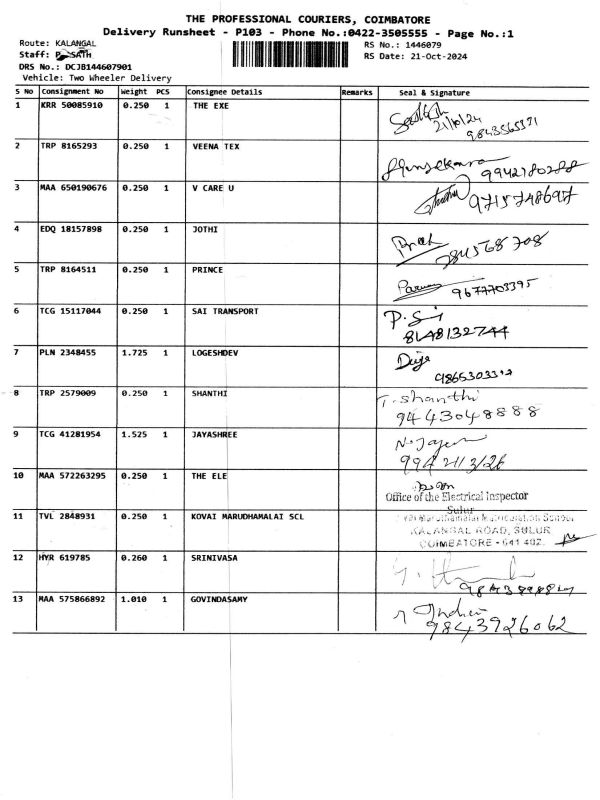 THE PROFESSIONAL COURIERS, COIMBATORE
Delivery Runsheet - P103 - Phone No.:0422-3505555 - Page No.:1
Route: KALANGAL
RS No.: 1446079
Staff:
RS Date: 21-Oct-2024
DRS No.: DCJB144607901
Vehicle: Two Wheeler Delivery
S No Consignment No Weight PCS Consignee Details Remarks Seal & Signature
1 KRR 50085910 0.250 1 THE EXE
21/10/24
9843565371
2 TRP 8165293 0.250 1 VEENA TEX
9942180288
3 MAA 650190676 0.250 1 V CARE U
9715748697
4 EDQ 18157898 0.250 1 JOTHI
5 TRP 8164511 0.250 1 PRINCE
9677703395
6 TCG 15117044 0.250 1 SAI TRANSPORT
P. Sai
8148132744
7 PLN 2348455 1.725 1 LOGESHDEV
8 TRP 2579009 0.250 1 SHANTHI
T. Shanthi
9443048888
9 TCG 41281954 1.525 1 JAYASHREE
10 MAA 572263295 0.250 1 THE ELE
Office of the Electrical Inspector
Sulur
11 TVL 2848931 0.250 1 KOVAI MARUDHAMALAI SCL
KALANGAL ROAD, SULUR
COIMBATORE - 641 402.
12 HYR 619785 0.260 1 SRINIVASA
13 MAA 575866892 1.010 1 GOVINDASAMY
9843926062